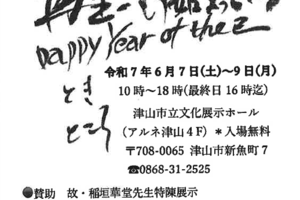 Happy Year of the 2
令和7年6月7日(土)~9日(月)
とき
10時~18時(最終日16時迄)
ところ
津山市立文化展示ホール
(アルネ津山4F) *入場無料
〒708-0065 津山市新魚町7
☎0868-31-2525
●賛助 故・稲垣華堂先生特陳展示